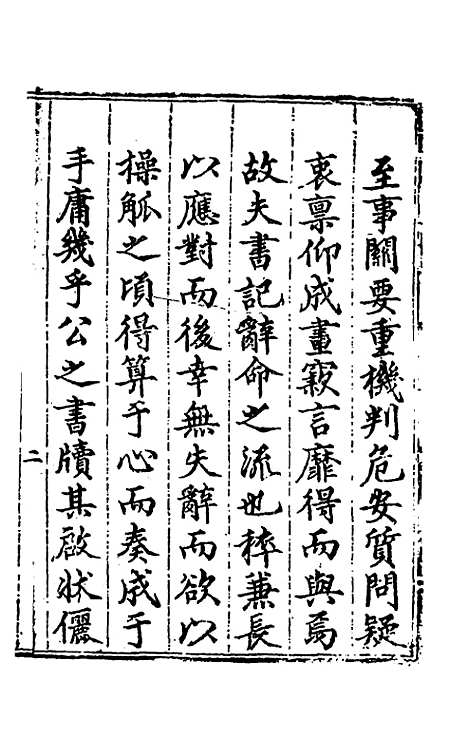 至事關要重機判危安質問疑
衷禀仰成畫竅言靡得而與焉
故夫書記辭命之流也稡兼長
以應對而後幸無失辭而欲以
操觚之頃得算于心而奏成于
手庸幾乎公之書牘其啟狀儷
二